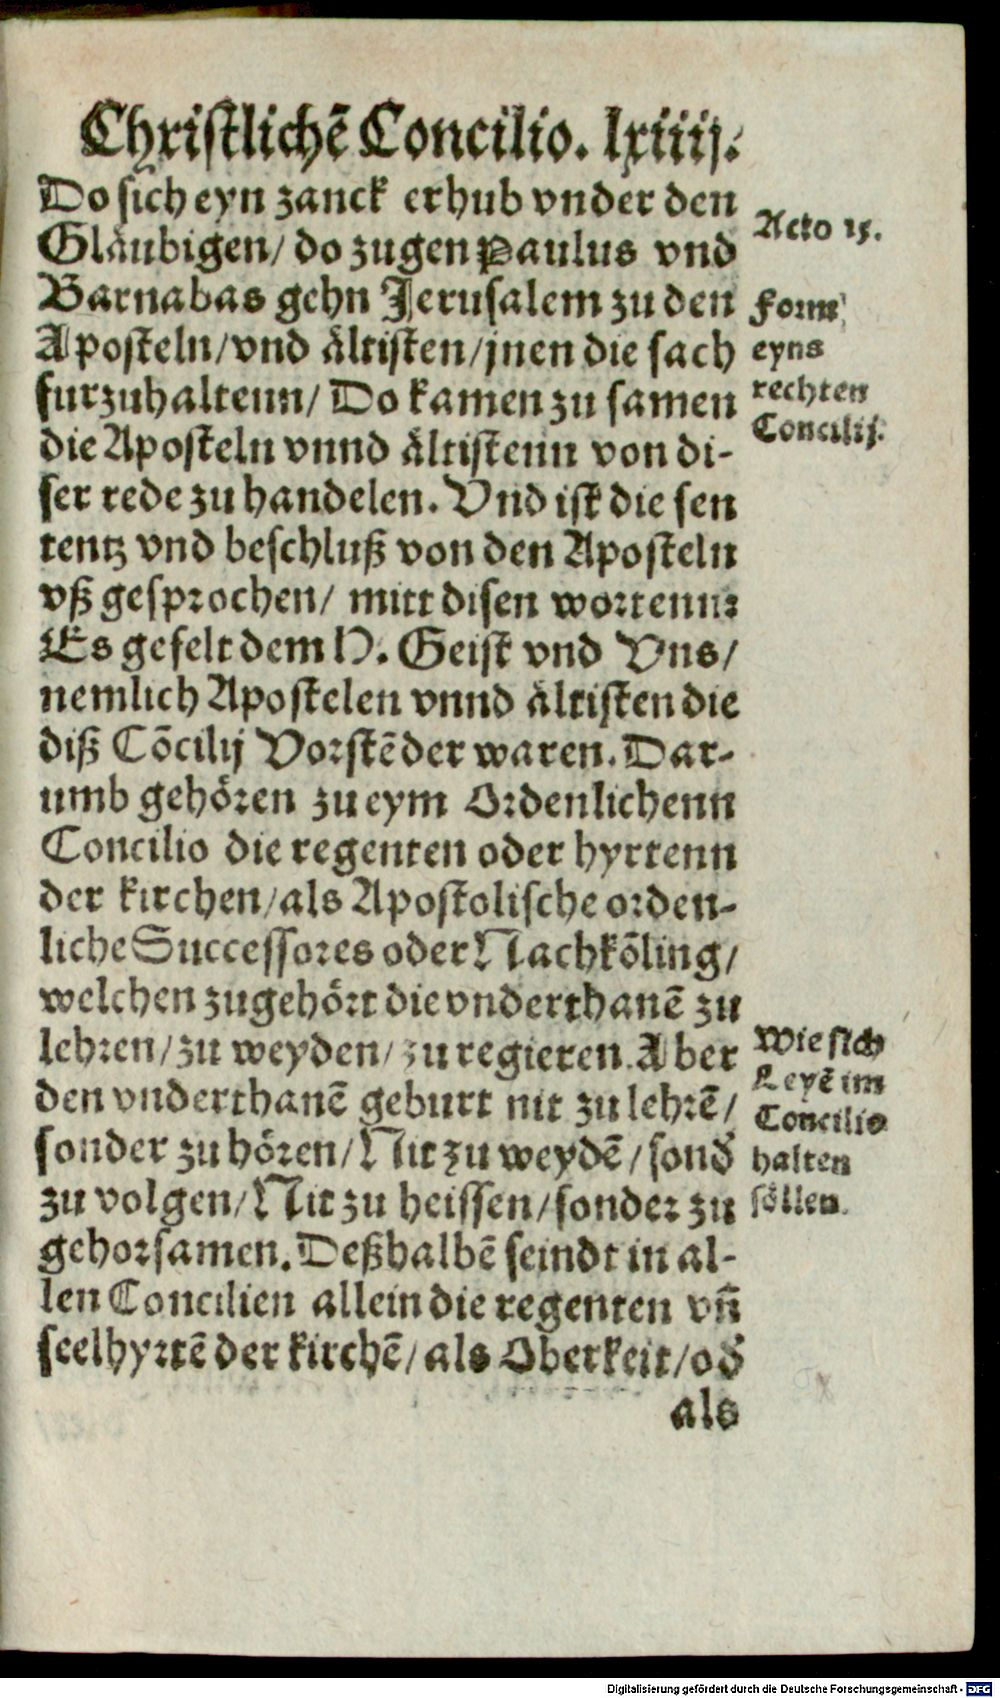 Christlichẽ Concilio. lxiiij.
Do sich eyn zanck erhub vnder den
Gläubigen/ do zugen Paulus vnd
Barnabas gehn Jerusalem zu den
Aposteln/vnd ältisten/jnen die sach
furzuhaltenn/ Do kamen zu samen
die Aposteln vnnd ältistenn von di-
ser rede zu handelen. Vnd ist die sen
tentz vnd beschluß von den Aposteln
vß gesprochen/ mitt disen wortenn:
Es gefelt dem H. Geist vnd Vns/
nemlich Apostelen vnnd ältisten die
diß Cõcilij Vorstẽder waren. Dar-
umb gehören zu eym Ordenlichenn
Concilio die regenten oder hyrtenn
der kirchen/als Apostolische orden-
liche Successores oder Nachkõling/
welchen zugehört die vnderthanẽ zu
lehren/zu weyden/zu regieren. Aber
den vnderthanẽ geburt nit zu lehrẽ/
sonder zu hören/Nit zu weydẽ/sond̃
zu volgen/Nit zu heissen/sonder zu
gehorsamen. Deßhalbẽ seindt in al-
len Concilien allein die regenten vñ
seelhyrtẽ der kirchẽ/als Oberkeit/od̃
als
Acto 15.
Form
eyns
rechten
Concilij.
Wie sich
Leyẽ im
Concilio
halten
söllen.
Digitalisierung gefördert durch die Deutsche Forschungsgemeinschaft - DFG